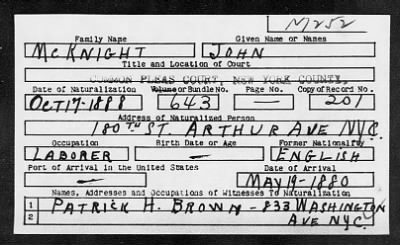 M252
Family Name Given Name or Names
McKNIGHT JOHN
Title and Location of Court
COMMON PLEAS COURT, NEW YORK COUNTY.
Date of Naturalization Volume or Bundle No. Page No. Copy of Record No.
OCT 17-1888 643 — 201
Address of Naturalized Person
180TH ST. ARTHUR AVE NYC.
Occupation Birth Date or Age Former Nationality
LABORER — ENGLISH
Port of Arrival in the United States Date of Arrival
— MAY 19-1880
Names, Addresses and Occupations of Witnesses To Naturalization
1 PATRICK H. BROWN - 833 WASHINGTON
2 AVE NYC.